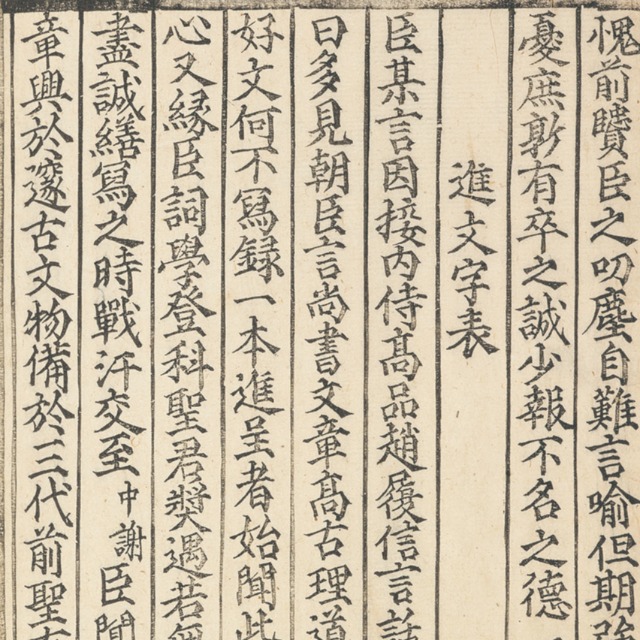 愧前賸臣之叨塵自難言喻但期
憂庶斁有卒之誠少報不名之德
進文字表
臣某言因接內侍高品趙履信言話
曰多見朝臣言尚書文章高古理道
好文何不寫録一本進呈者始聞此
心又緣臣詞學登科聖君奬遇若無
盡誠繕寫之時戰汗交至中謝臣聞
章興於邃古文物備於三代前聖